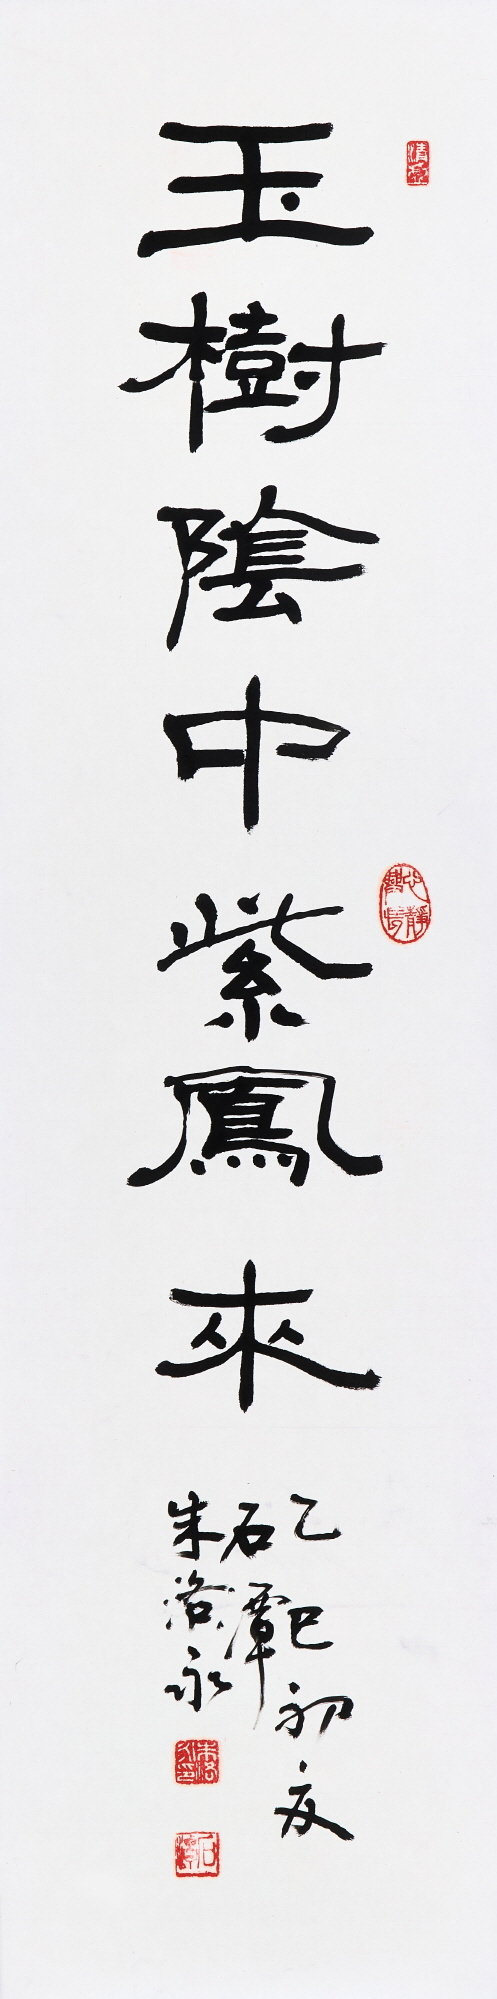 玉樹陰中紫鳳來
乙巳初夏
石潭
朱洛永